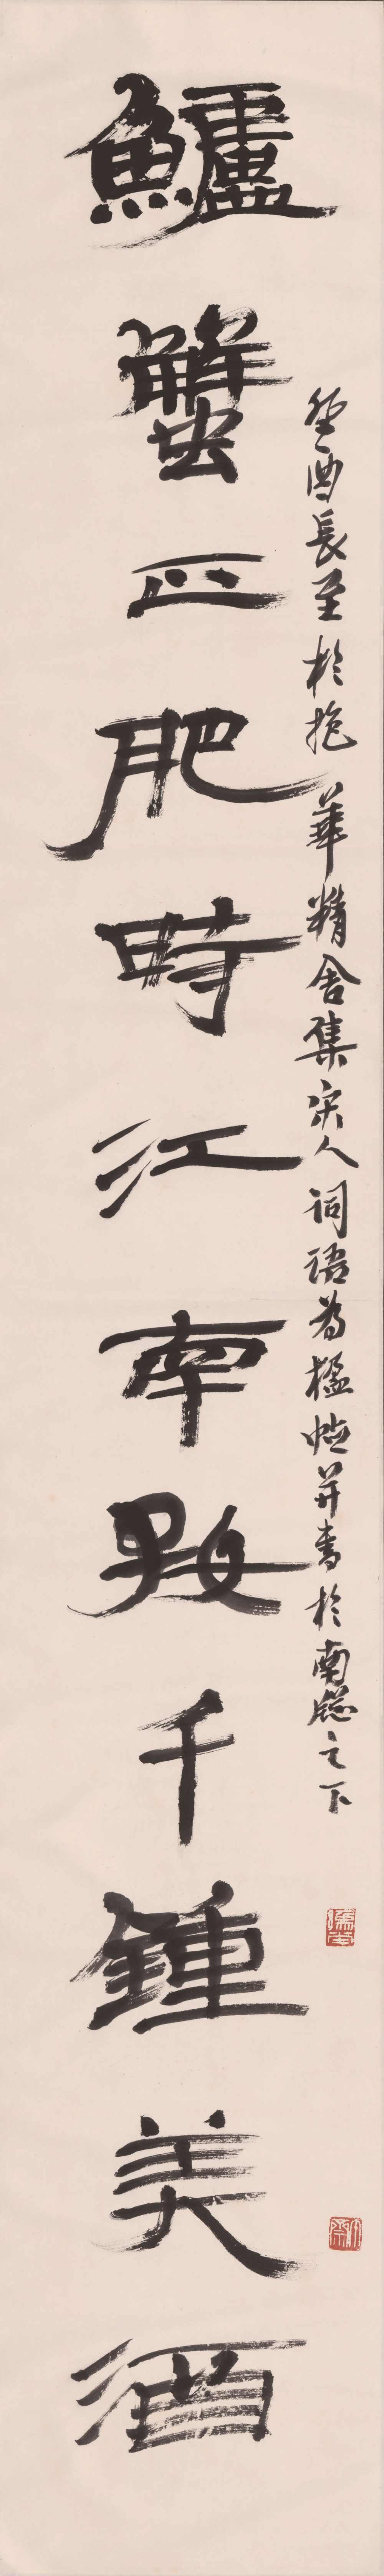 癸酉長至於抱華精舍集宋人詞語為楹帖并書於南牕之下
鱸蟹正肥時江南好千鍾美酒